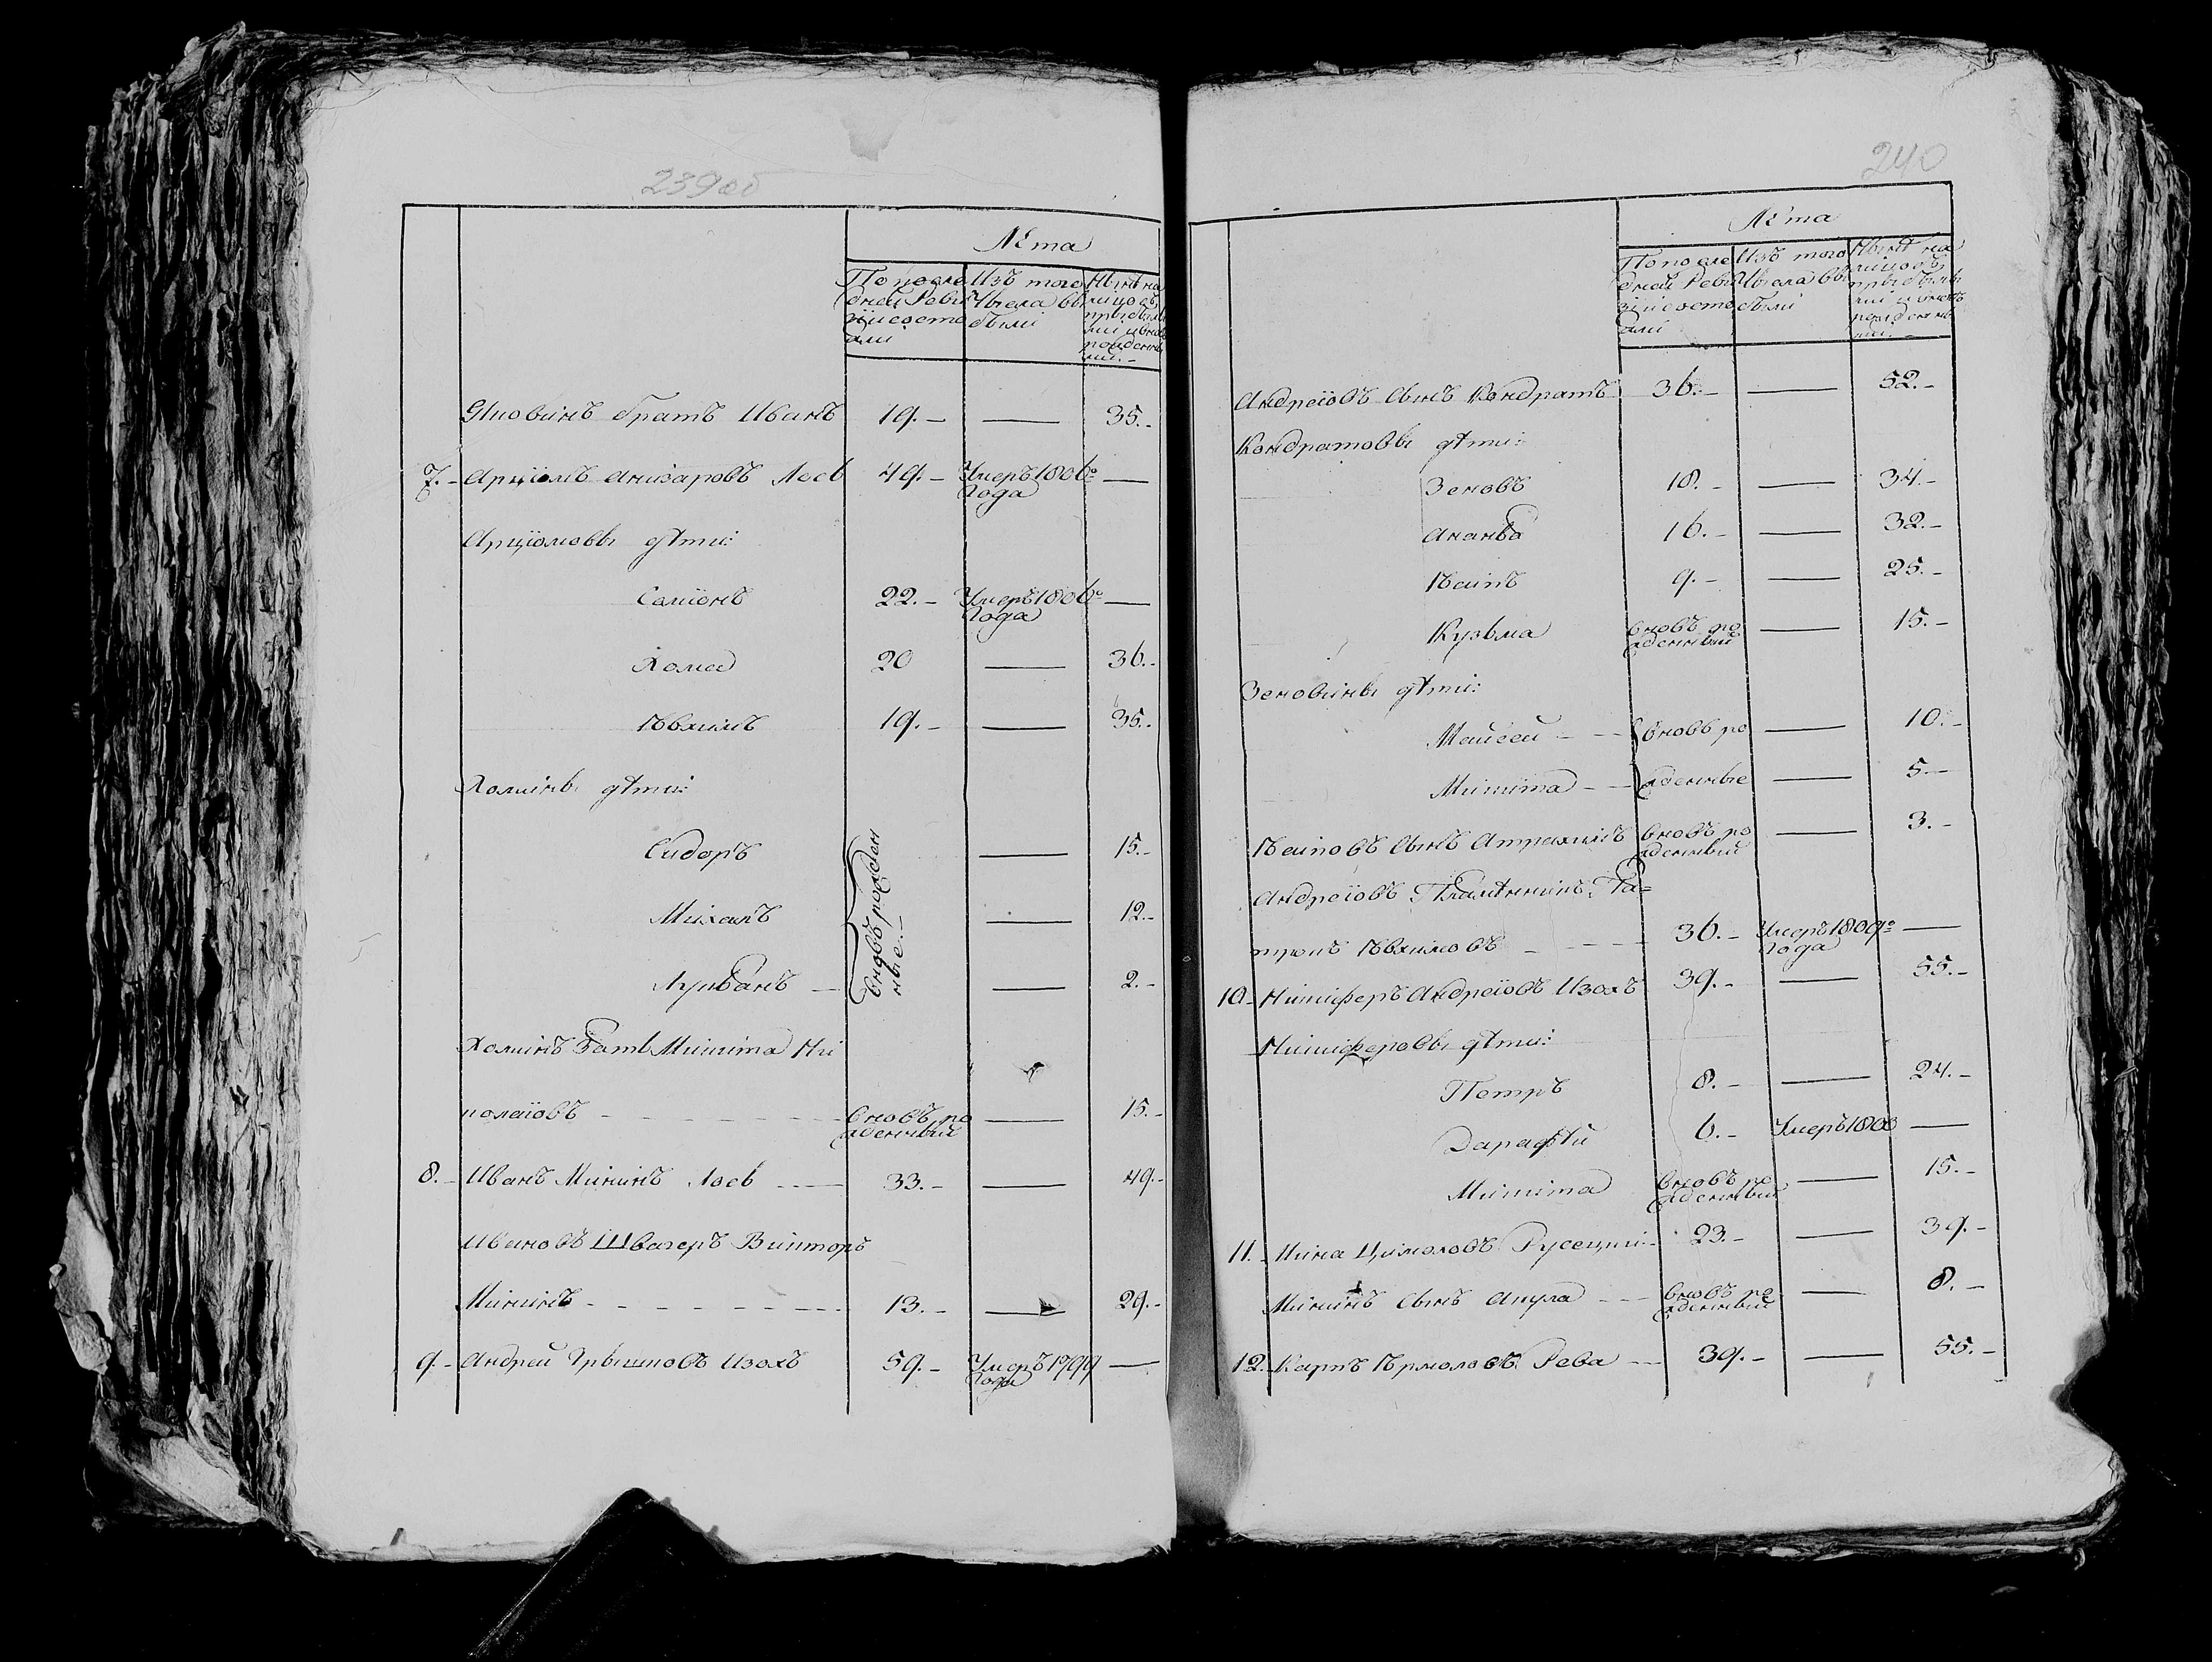 239 об
Лѣта
По послѣдней Ревизіи состояли
Изъ того числа выбыли
Нынѣ на лицо съ прыбылыми и вновь рожденными.-
Яковинъ братъ Иванъ 19.- — 35.-
7.- Арціомъ Анизаровъ Лось 49.- Умеръ 1806го года —
Арціомовы дѣти:
Саліонъ 22.- Умеръ 1806го года —
Хома 20 — 36.-
Евхимъ 19.- — 35.-
Хомины дѣти:
Сидоръ вновь рожденные.- — 15.-
Михалъ — 12.-
Лукьанъ — 2.-
Хоминъ Зать Микита Ни
колаіовъ вновь рожденный — 15.-
8.- Иванъ Мининъ Лось 33.- — 49.-
Ивановъ Швагеръ Викторъ
Мининъ 13.- — 29.-
9.- Андрей Грышковъ Изохъ 59.- Умеръ 1799 года —
240
Лѣта
По послѣдней Ревизіи состояли
Изъ того числа выбыли
Нынѣ на лицо съ прыбылыми и вновь рожденными.-
Андреіовъ сынъ Кондратъ 36.- — 52.-
Кондратовы дѣти:
Зеновъ 18.- — 34.-
Ананьа 16.- — 32.-
Есипъ 9.- — 25.-
Кузьма вновь рожденный — 15.-
Зеновины дѣти:
Майсей вновь ро — 10.-
Микита жденные — 5.-
Есиповъ сынъ Атрахимъ вновь рожденный — 3.-
Андреіовъ Племянникъ Па=
трокъ Евхимовъ 36.- Умеръ 1809го года —
10.- Никиферъ Андреіовъ Изохъ 39.- — 55.-
Никиферовы дѣти:
Петръ 8.- — 24.-
Дарафѣй 6.- Умеръ 1800 —
Микита вновь рожденный — 15.-
11.- Мина Цимоховъ Русецкий 23.- — 39.-
Мининъ сынъ Акула вновь рожденный — 8.-
12.- Карпъ Ермоловъ Рева 39.- — 55.-